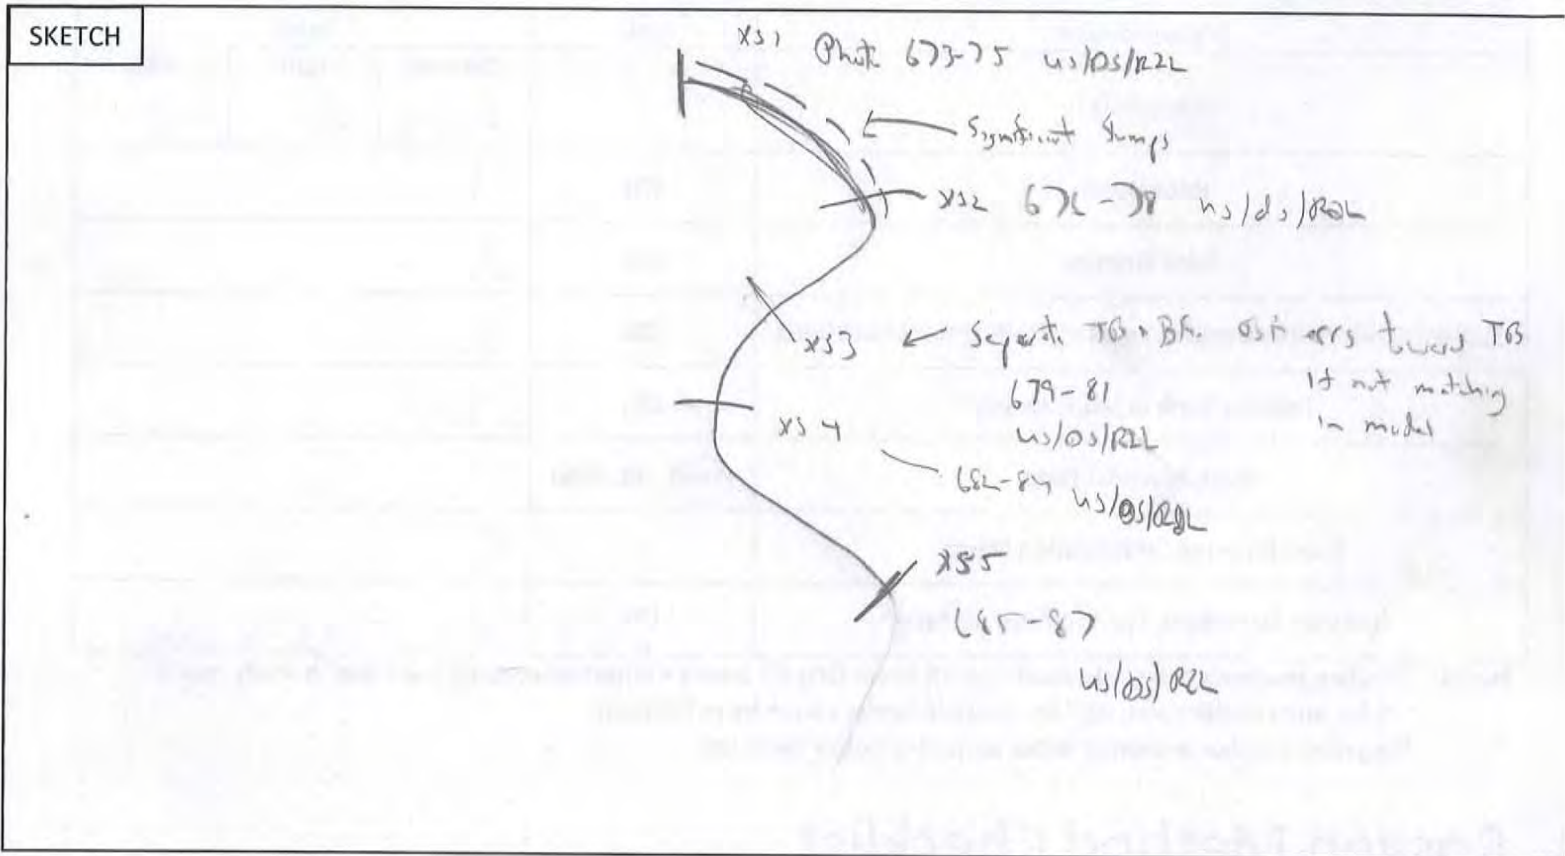 SKETCH
XS1 Phot 673-75 us/DS/R2L
Significant Slumps
XS2 676-78 us/ds/R2L
XS3 Separate TB + BF towards TB
679-81 If not matching
us/DS/R2L in model
XS4
682-84 us/DS/R2L
XS5
685-87
us/DS/R2L